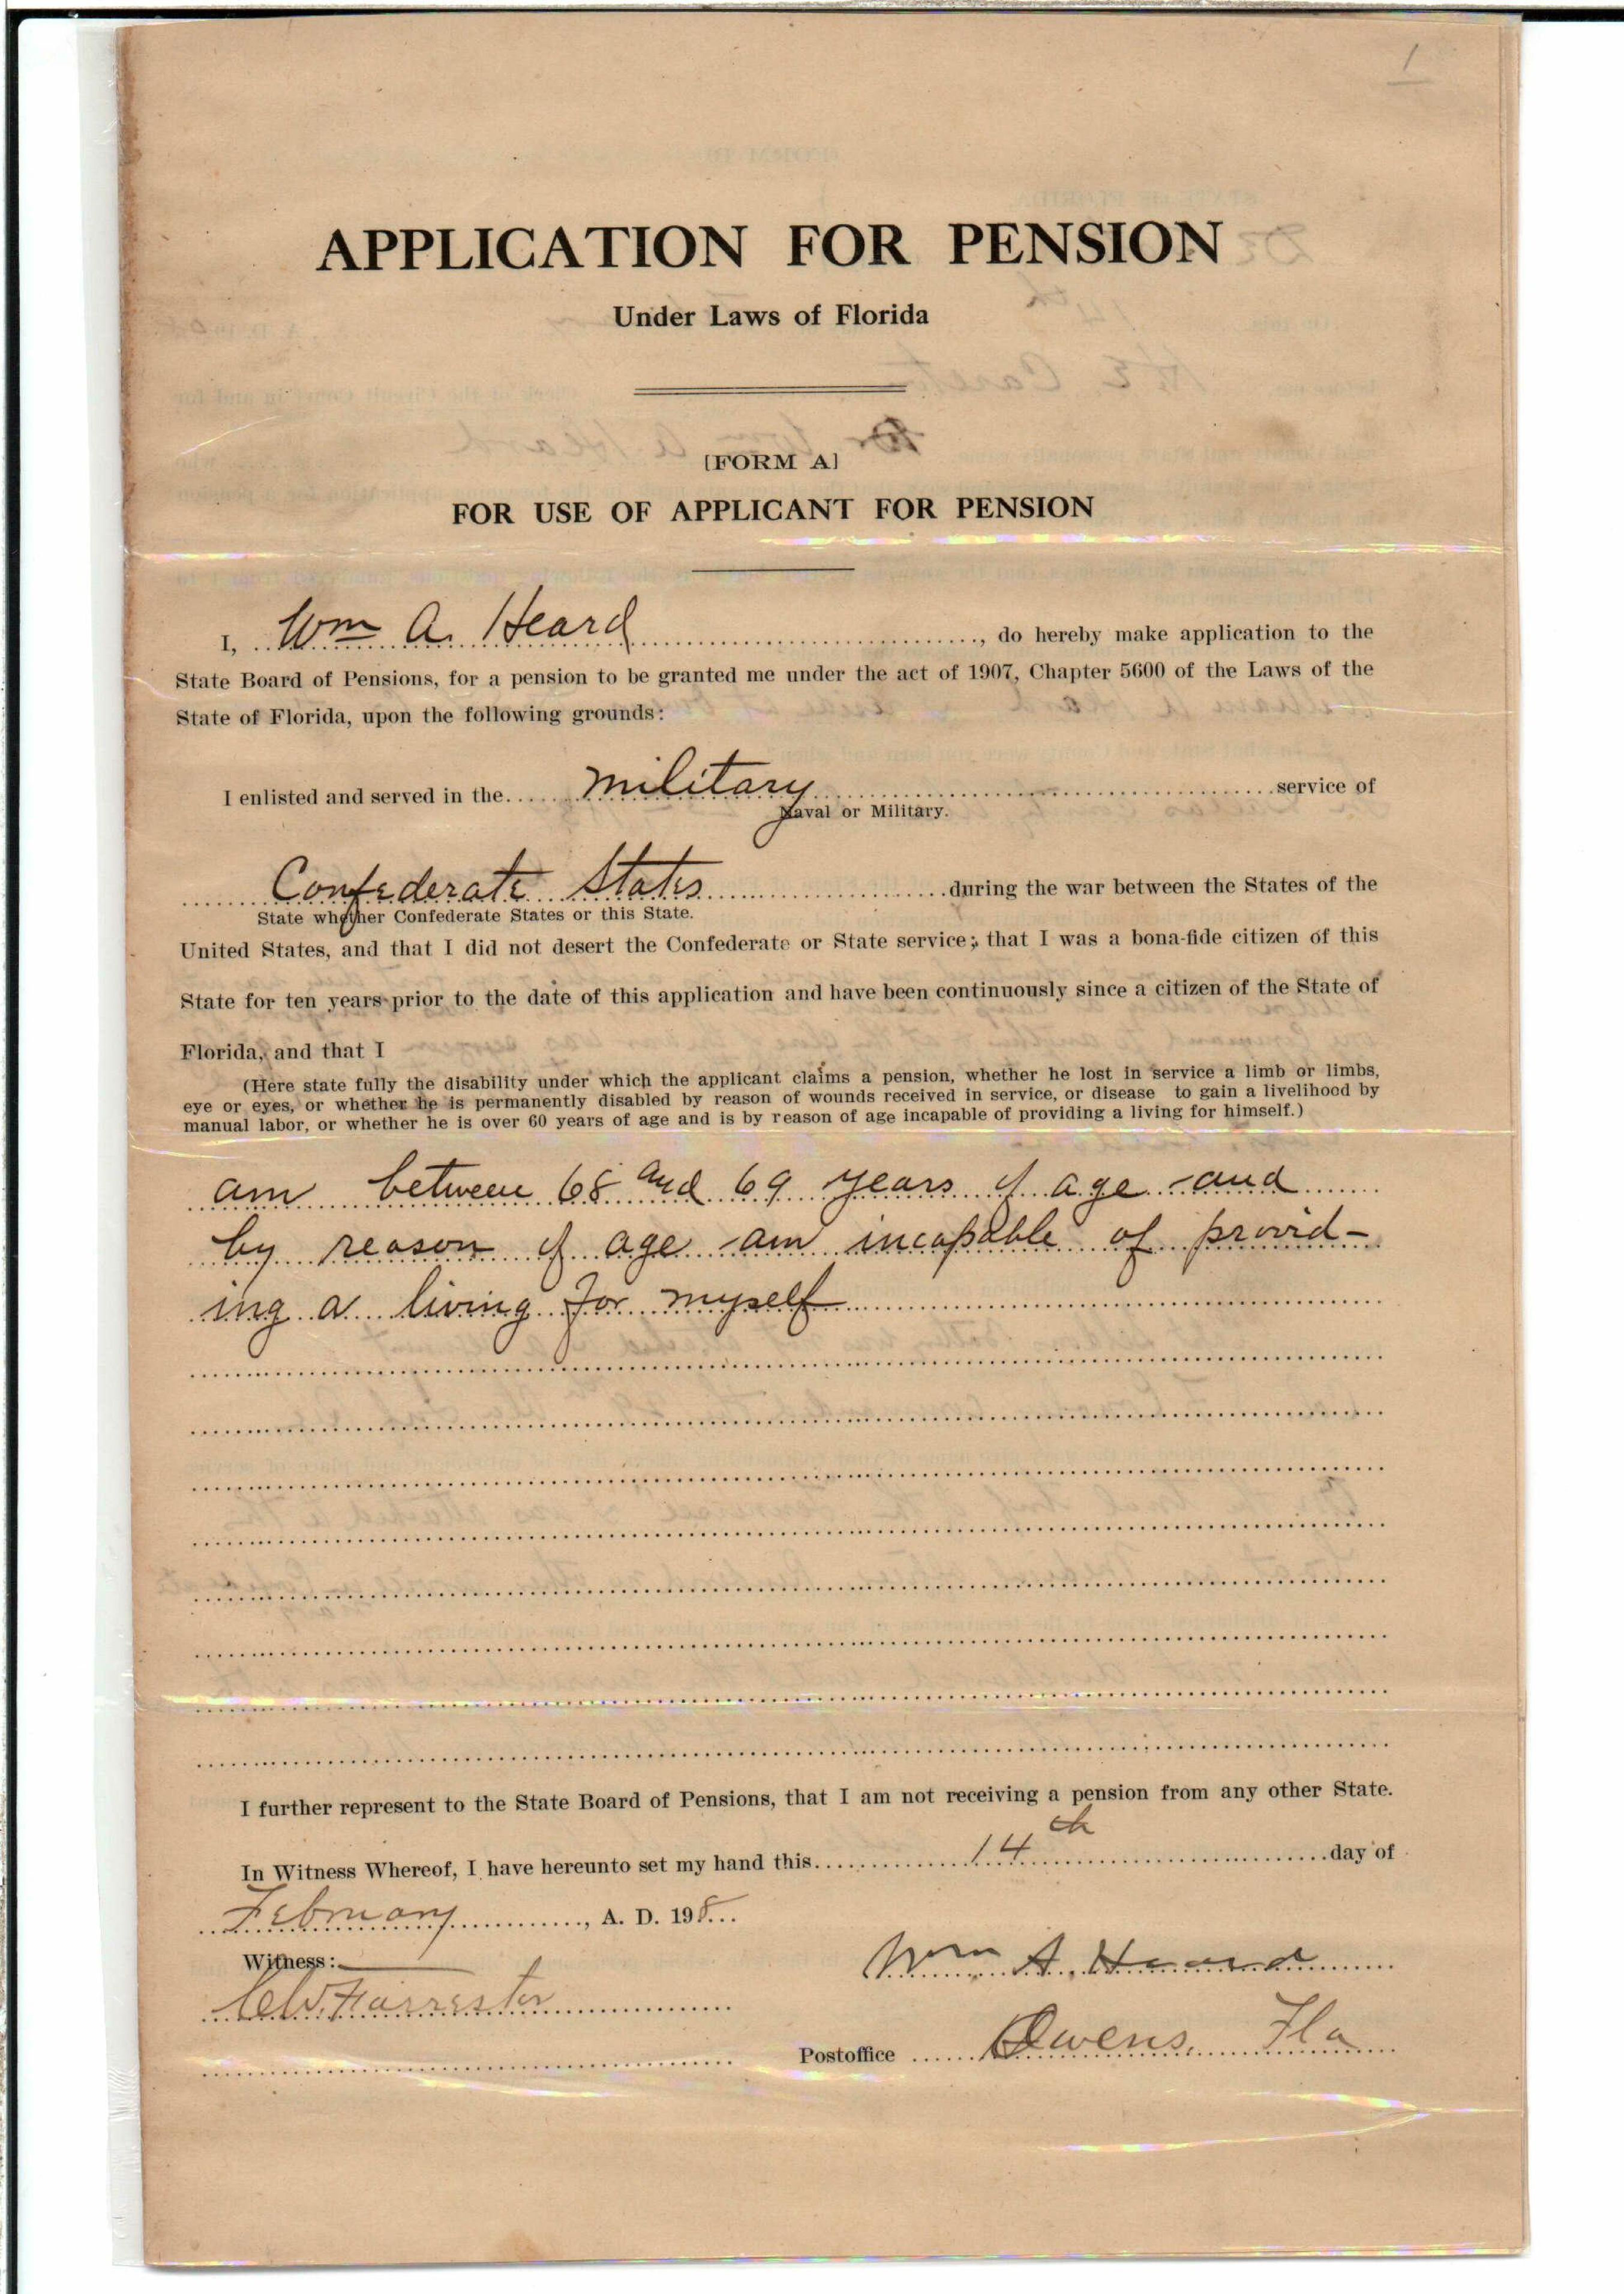 1
APPLICATION FOR PENSION
Under Laws of Florida
[FORM A]
FOR USE OF APPLICANT FOR PENSION
I, Wm A. Heard, do hereby make application to the
State Board of Pensions, for a pension to be granted me under the act of 1907, Chapter 5600 of the Laws of the
State of Florida, upon the following grounds:
I enlisted and served in the military service of
Naval or Military.
Confederate States during the war between the States of the
State whether Confederate States or this State.
United States, and that I did not desert the Confederate or State service; that I was a bona-fide citizen of this
State for ten years prior to the date of this application and have been continuously since a citizen of the State of
Florida, and that I
(Here state fully the disability under which the applicant claims a pension, whether he lost in service a limb or limbs,
eye or eyes, or whether he is permanently disabled by reason of wounds received in service, or disease to gain a livelihood by
manual labor, or whether he is over 60 years of age and is by reason of age incapable of providing a living for himself.)
am between 68 and 69 years of age and
by reason of age am incapable of provid-
ing a living for myself
I further represent to the State Board of Pensions, that I am not receiving a pension from any other State.
In Witness Whereof, I have hereunto set my hand this 14th day of
February, A. D. 198
Witness:
Wm A. Heard
C W. Forrester
Postoffice Owens, Fla